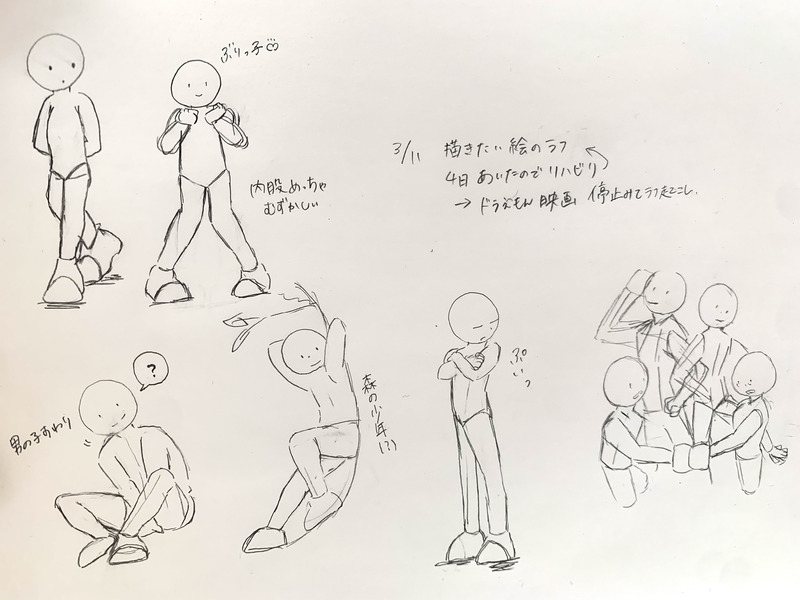 ぶりっ子
内股めっちゃ
むずかしい
3/11 描きたい絵のラフ
4日あいたのでリハビリ
→ ドラえもん映画 停止みてラフ起こし.
?
男の子すわり
森の少年(?)
ぷいっ